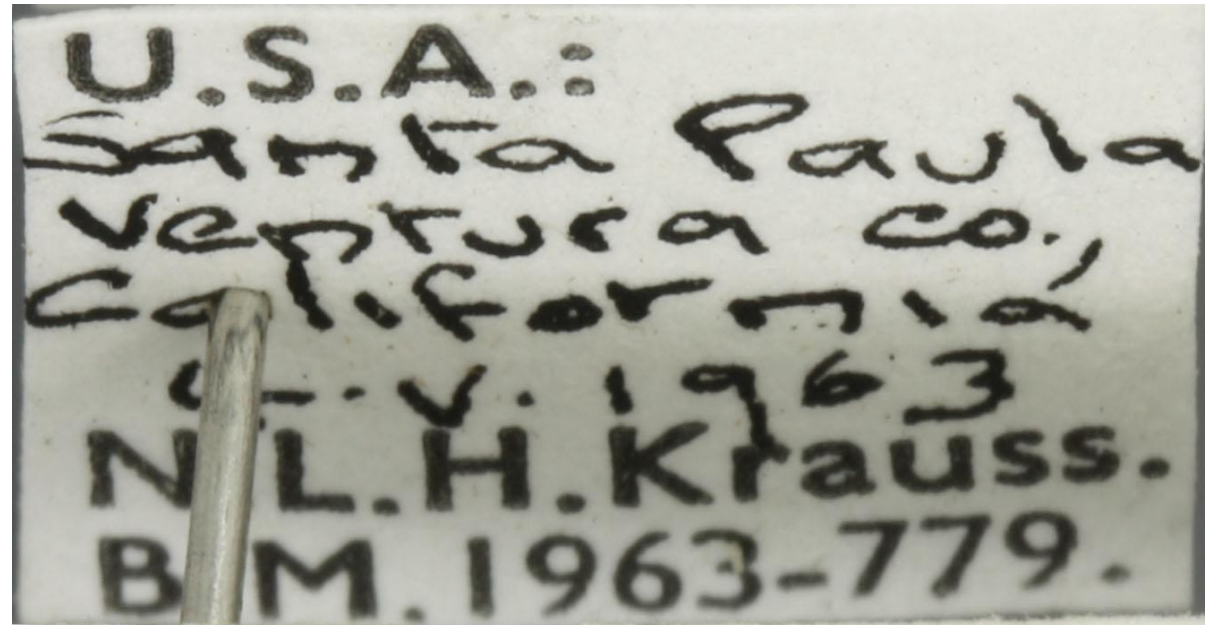 U.S.A.:
Santa Paula
Ventura co.,
California
.v.1963
N.L.H.Krauss.
B.M.1963-779.